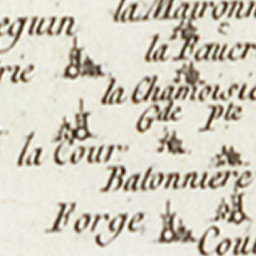 la Maironn
eguin
la Faucr
rie
la Chamoisie
Gde Pte
la Cour
Batonniere
Forge
Cou